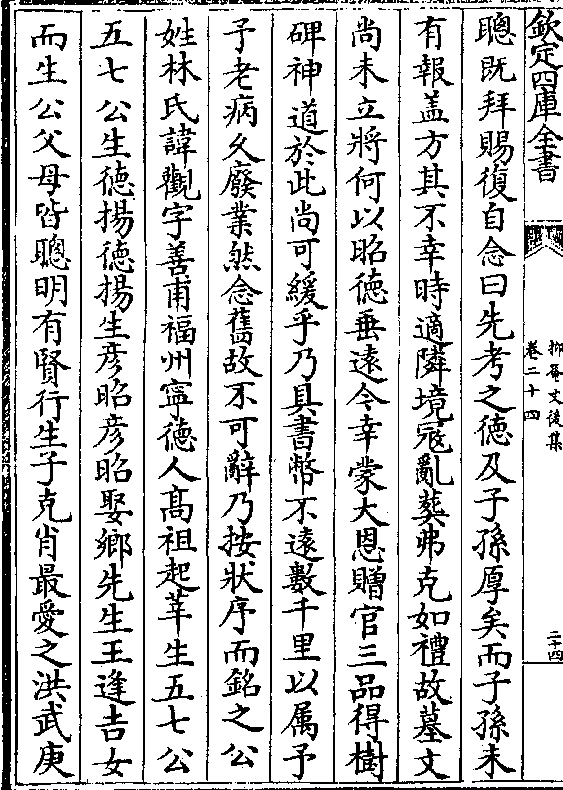 欽定四庫全書
抑菴文後集
卷二十四
二十四
聰既拜賜復自念曰先考之德及子孫厚矣而子孫未
有報盖方其不幸時適隣境冦亂葬弗克如禮故墓文
尚未立將何以昭德垂遠今幸蒙大恩贈官三品得樹
碑神道於此尚可緩乎乃具書幣不遠數千里以属予
予老病久廢業然念舊故不可辭乃按狀序而銘之公
姓林氏諱觀字善甫福州寧德人髙祖起莘生五七公
五七公生德揚德揚生彦昭彦昭娶鄉先生王逢吉女
而生公父母皆聰明有賢行生子克肖最愛之洪武庚